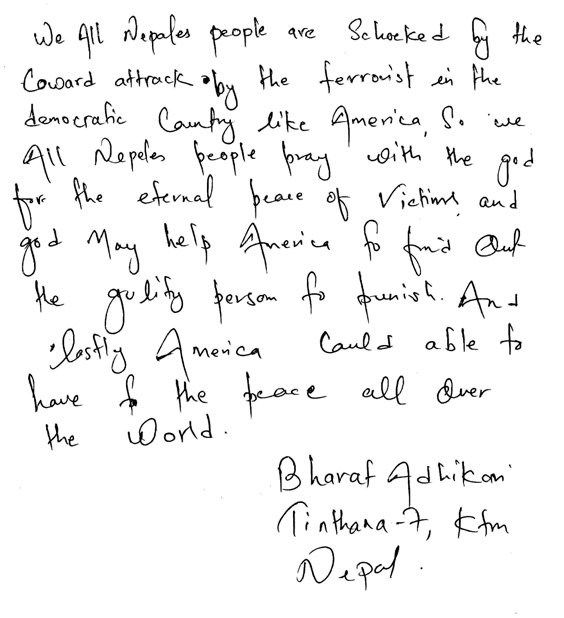 We All Nepales people are Schocked by the
Coward attrack by the terrorist in the
democratic Country like America, So we
All Nepeles people pray with the god
for the eternal peace of Victims, and
god May help America to find Out
the gulity person to punish. And
lastly America Could able to
have the peace all Over
the World.
Bharat Adhikari
Tinthana-7, Ktm
Nepal.